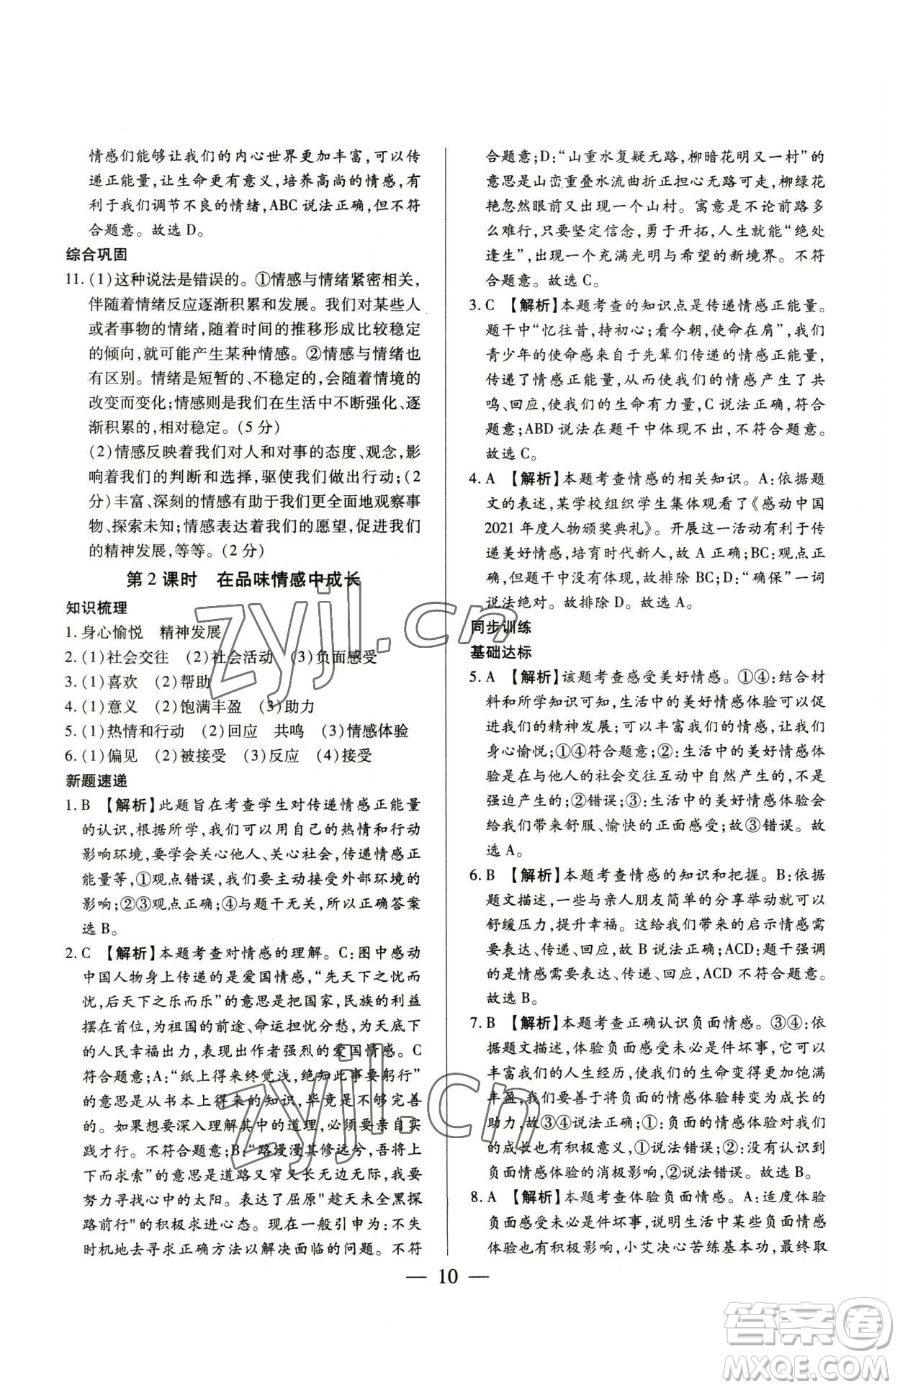 情感们能够让我们的内心世界更加丰富,可以传
递正能量,让生命更有意义,培养高尚的情感,有
利于我们调节不良的情绪,ABC 说法正确,但不符
合题意。故选 D。
综合巩固
11. (1)这种说法是错误的。①情感与情绪紧密相关,
伴随着情绪反应逐渐积累和发展。我们对某些人
或者事物的情绪,随着时间的推移形成比较稳定
的倾向,就可能产生某种情感。②情感与情绪也
有区别。情绪是短暂的、不稳定的,会随着情境的
改变而变化;情感则是我们在生活中不断强化、逐
渐积累的,相对稳定。(5 分)
(2)情感反映着我们对人和对事的态度、观念,影
响着我们的判断和选择,驱使我们做出行动;(2
分)丰富、深刻的情感有助于我们更全面地观察事
物、探索未知;情感表达着我们的愿望,促进我们
的精神发展,等等。(2 分)
第 2 课时 在品味情感中成长
知识梳理
1. 身心愉悦 精神发展
2. (1)社会交往 (2)社会活动 (3)负面感受
3. (1)喜欢 (2)帮助
4. (1)意义 (2)饱满丰盈 (3)助力
5. (1)热情和行动 (2)回应 共鸣 (3)情感体验
6. (1)偏见 (2)被接受 (3)反应 (4)接受
新题速递
1. B 【解析】此题旨在考查学生对传递情感正能量
的认识,根据所学,我们可以用自己的热情和行动
影响环境,要学会关心他人、关心社会,传递情感正
能量等,①观点错误,我们要主动接受外部环境的
影响;②③观点正确;④与题干无关。故正确答案
选 B。
2. C 【解析】本题考查对情感的理解。C:图中感动
中国人物身上传递的是爱国情感,“先天下之忧而
忧,后天下之乐而乐”的意思是把国家,民族的利益
摆在首位,为祖国的前途、命运担忧分愁,为天底下
的人民幸福出力,表现出作者强烈的爱国情感。C
符合题意;A:“纸上得来终觉浅,绝知此事要躬行”
的意思是从书本上得来的知识,毕竟是不够完善
的。如果想要深入理解其中的道理,必须要亲自实
践才行。不符合题意;B:“路漫漫其修远兮,吾将上
下而求索”的意思是道路又窄又长无边无际,我要
努力寻找心中的太阳。表达了屈原“趁天未全黑探
路前行”的积极求进心态。现在一般引申为:不失
时机地去寻求正确方法以解决面临的问题。不符
合题意;D:“山重水复疑无路,柳暗花明又一村”的
意思是山峦重叠水流曲折正担心无路可走,柳绿花
艳忽然眼前又出现一个山村。寓意是不论前路多
么难行,只要坚定信念,勇于开拓,人生就能“绝处
逢生”,出现一个充满光明与希望的新境界。不符
合题意。故选 C。
3. C 【解析】本题考查的知识点是传递情感正能量。
题干中“忆往昔,持初心;看今朝,使命在肩”,我们
青少年的使命感来自于先辈们传递的情感正能量,
传递了情感正能量,使我们的情感产生了共
鸣、回应,使我们的生命有力量,C 说法正确,符合
题意;ABD 说法在题干中体现不出,不符合题意。
故选 C。
4. A 【解析】本题考查情感的相关知识。A:依据题
文的表述,某学校组织学生集体观看了《感动中国
2021 年度人物颁奖典礼》。开展这一活动有利于传
递美好情感,培育时代新人,故 A 正确;BC:说法错
误,故排除 BC;D:“确保”一词
说法绝对。故排除 D。故选 A。
同步训练
基础达标
5. A 【解析】该题考查感受美好情感。①④:结合材
料和所学知识可知,生活中的美好情感可以促
进我们的精神发展;可以丰富我们的情感,让我们
身心愉悦;①④符合题意;②:生活中的美好情感体
验是在与他人的社会交往互动中自然产生的,不是
强迫产生的;②错误;③:生活中的美好情感体验会
给我们带来舒服、愉快的正面感受;故③错误。故
选 A。
6. B 【解析】本题考查情感的知识和把握。B:依据
题文描述,一些与亲人朋友简单的分享举动就可以
舒缓压力,提升幸福。这给我们带来的启示情感需
要表达、传递、回应,故 B 说法正确;ACD:题干强调
的是情感需要表达、传递、回应,ACD 不符合题意。
故选 B。
7. B 【解析】本题考查正确认识负面情感。③④:依
据题文描述,体验负面感受未必是件坏事,它可以
丰富我们的人生经历,使我们的生命变得更加饱满
丰盈,我们要善于将负面的情感体验转变为成长的
助力,故③④说法正确;①:负面的情感体验对我们
的成长也有积极意义,①说法错误;②:没有认识到
负面情感体验的消极影响,②说法错误。故选 B。
8. A 【解析】本题考查体验负面情感。A:适度体验
负面感受未必是件坏事,说明生活中某些负面情感
体验也有积极影响,小艾决心苦练基本功,最终取
— 10 —
zyjl.cn
zyjl.cn
答案圈
MXQE.COM